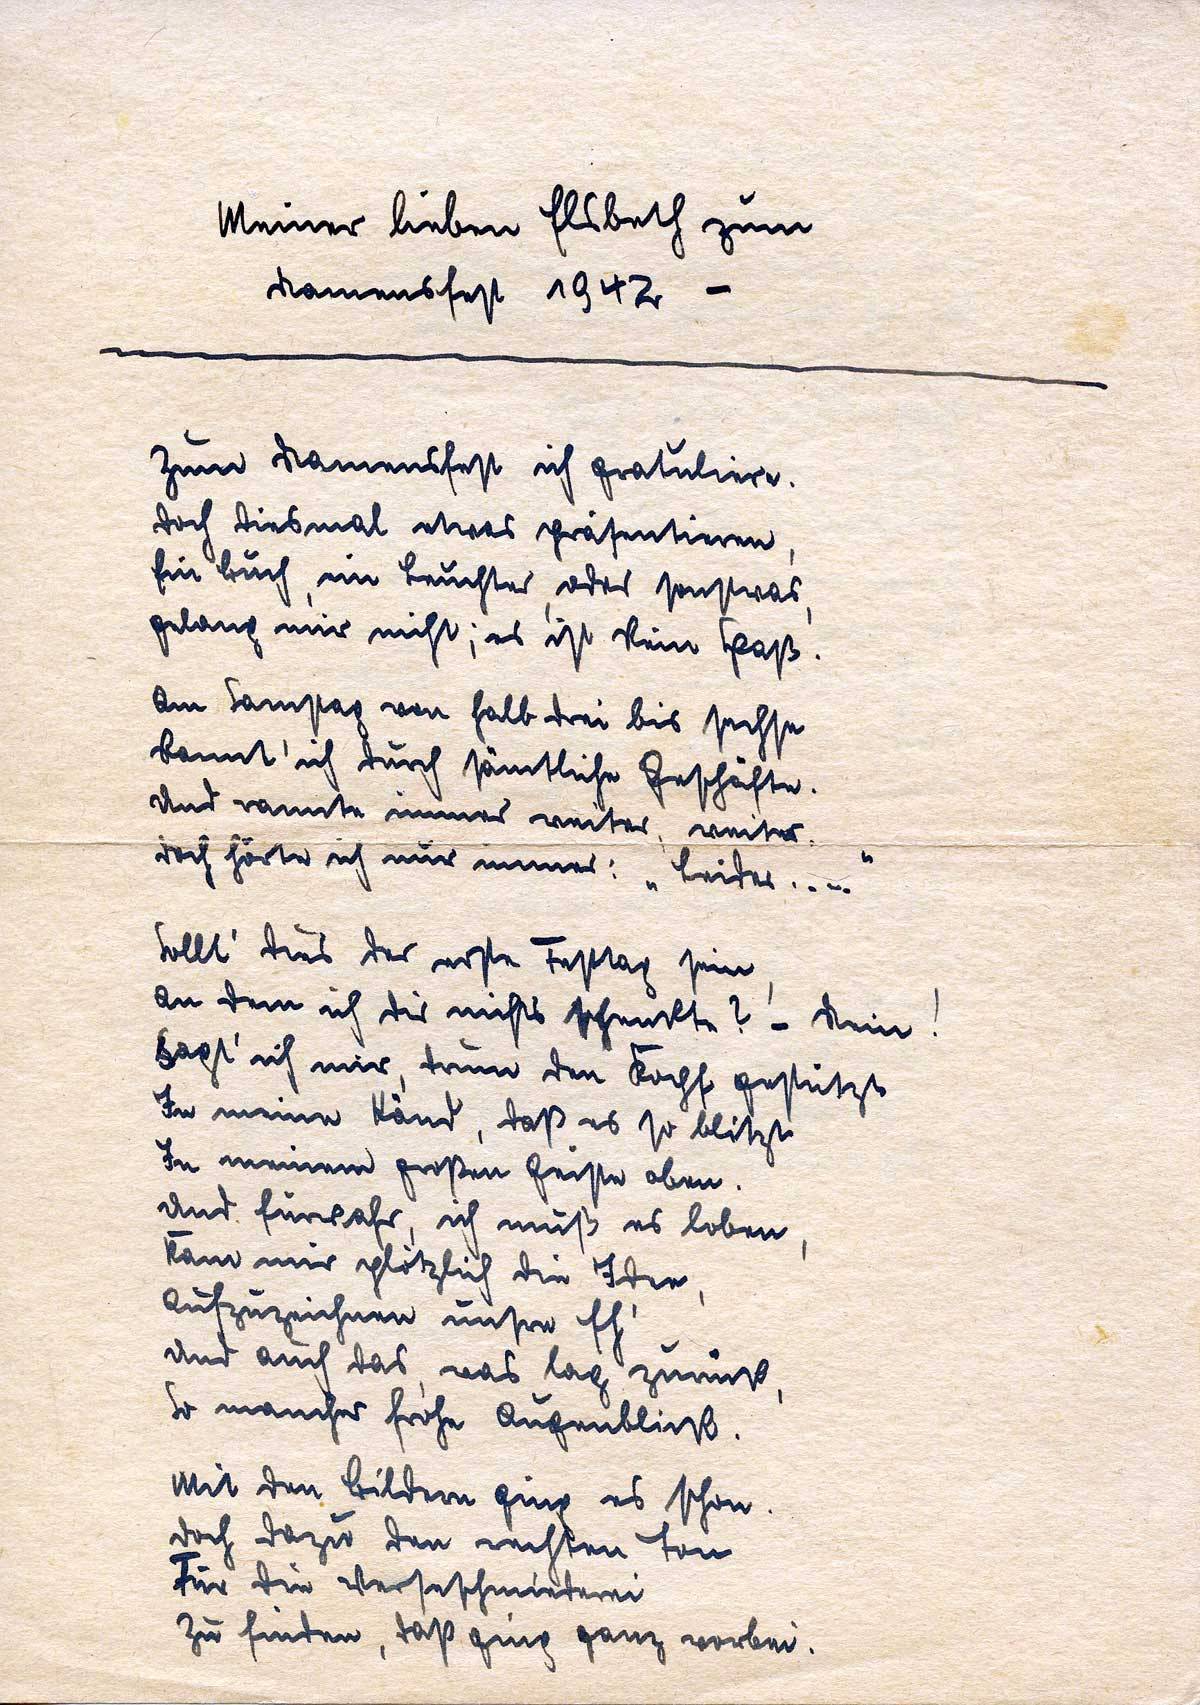 Meiner lieben Elsbeth zum
Namensfest 1942 –
Zum Namensfest ich gratuliere.
Doch diesmal etwas präsentieren,
Ein Buch, ein Leuchter, oder sonstwas,
gelang mir nicht; es ist kein Spaß.
Am Samstag von halb drei bis sechse
Rannt' ich durch sämtliche Geschäfte.
Und rannte immer weiter, weiter.
Doch hörte ich nur immer: „Leider....."
Sollt' dies der erste Festtag sein,
An dem ich dir nichts schenkte? – Nein!
Sagt' ich mir, drum den Kopf gestützt
In meine Händ, daß es so blitzt
In meinem großen Geiste oben.
Und fürwahr, ich muß es loben,
Kam mir plötzlich die Idee,
Aufzuzeichnen unsre Eh'
Und auch das, was lag zurück,
So mancher frohe Augenblick.
Mit den Bildern ging es schon.
Doch dazu den rechten Ton
Für die Verseschmiederei
Zu finden, daß ging ganz vorbei.